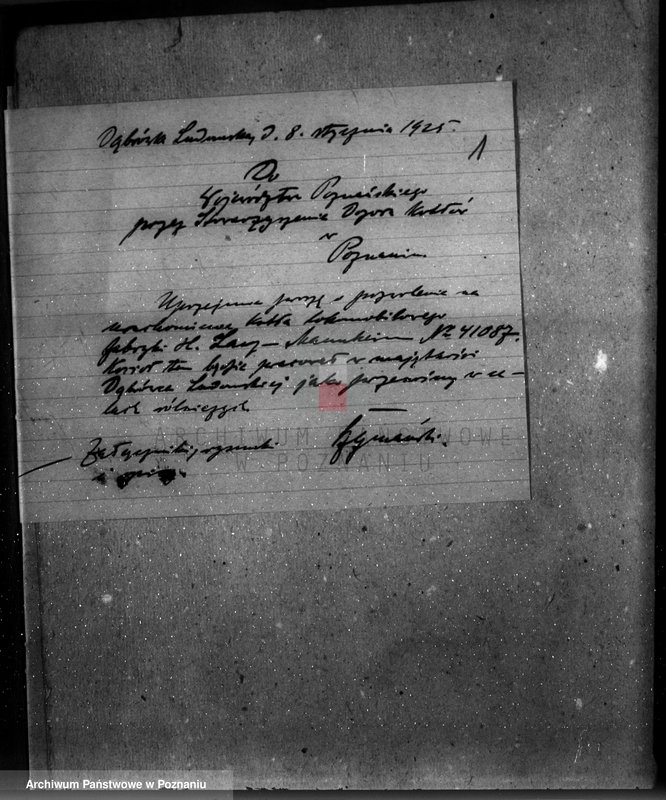 Dąbrówka Ludomska, d. 8. stycznia 1925.
1
Do
Województwa Poznańskiego
przez Stowarzyszenie Dozoru Kotłów
w
Poznaniu
Uprzejmie proszę o pozwolenie na
uruchomienie kotła lokomobilowego
fabryki H. Lanz – Mannheim № 41087.
Kocioł ten będzie pracował w majętności
Dąbówce Ludomskiej jako przenośny w ce-
lach rolniczych
Szymański.
Załączniki, rysunki
i
ARCHIWUM PAŃSTWOWE
W POZNANIU
Archiwum Państwowe w Poznaniu